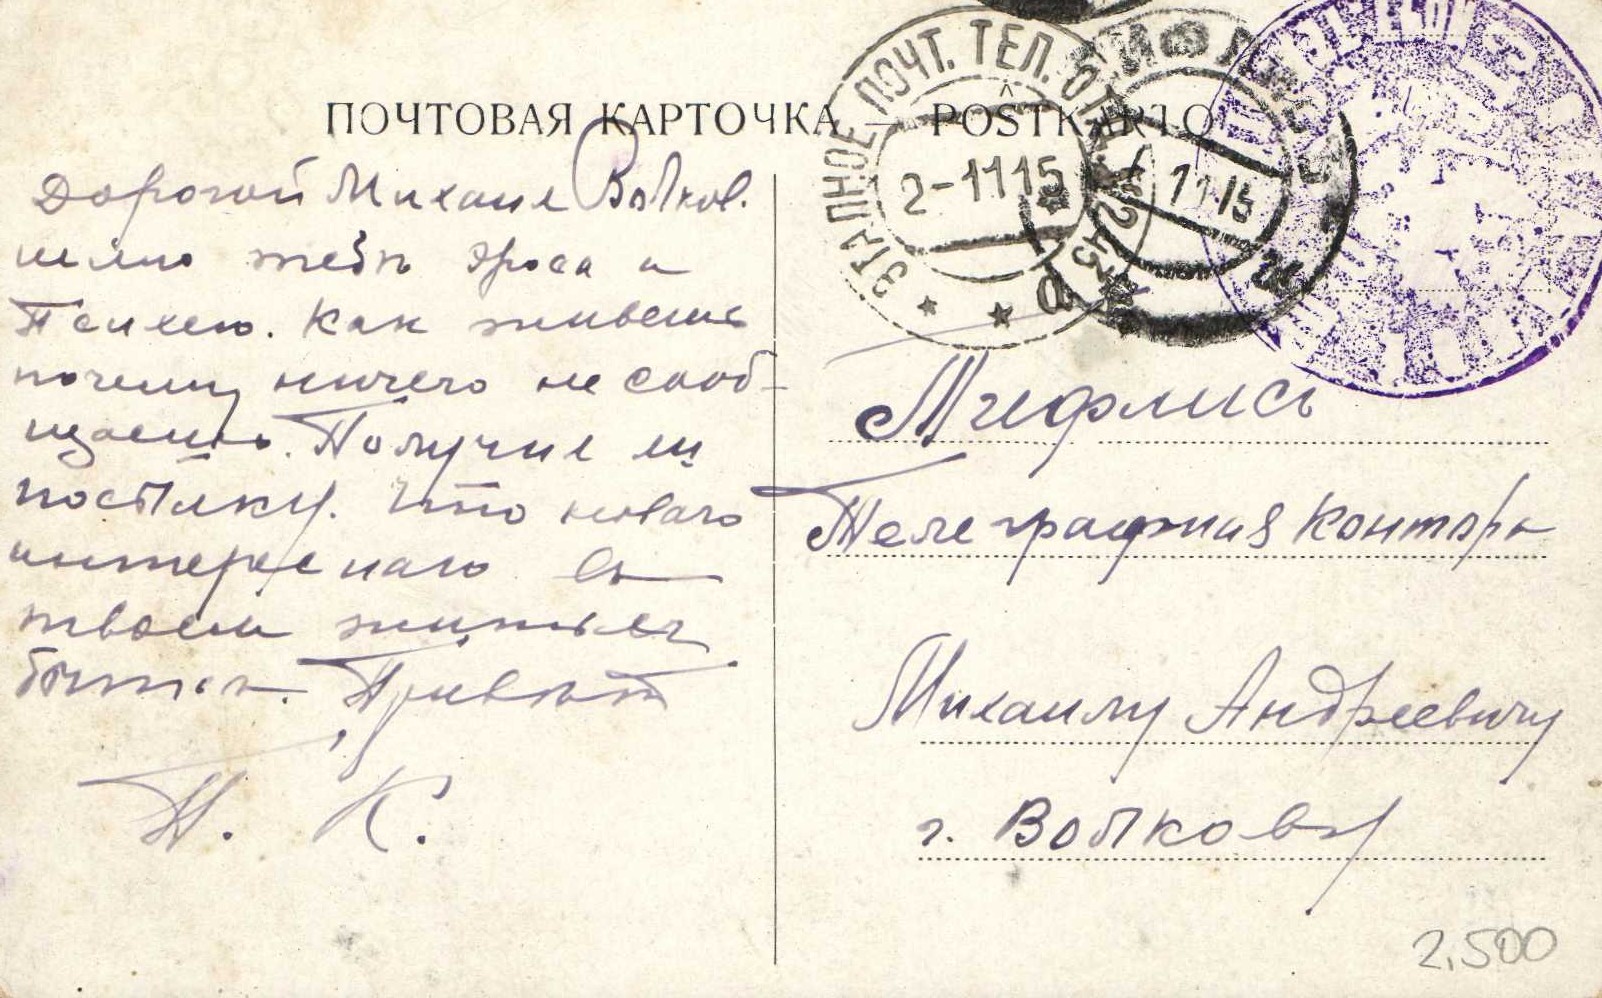 ПОЧТОВАЯ КАРТОЧКА — POŜTKARTO
ЭТАПНОЕ ПОЧТ. ТЕЛ. ОТД. № 245
2-11 15
11 15
Дорогой Михаил Волков.
шлю тебѣ Эроса и
Психею. Как живешь
почему ничего не сооб-
щаешь. Получил ли
посылку. Что новаго
интереснаго въ
твоем житьеѣ
бытьѣ. Привѣт
Н. К.
Тифлисъ
Телеграфная Контора
Михаилу Андреевичу
г. Волкову
2,500